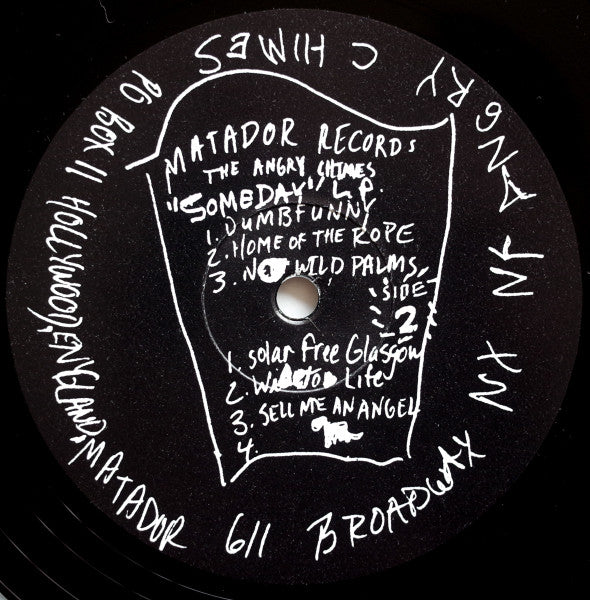 MATADOR RECORDS
THE ANGRY CHIMES
"SOMEDAY" L.P.
1. DUMBFUNNY
2. HOME OF THE ROPE
3. WILD PALMS
SIDE
2
1. Solar Free Glasgow
2. Life
3. SELL ME AN ANGEL
4.
ANGRY CHIMES
PO BOX 11 HOLLYWOOD, ENGLAND, MATADOR 611 BROADWAY NY NY